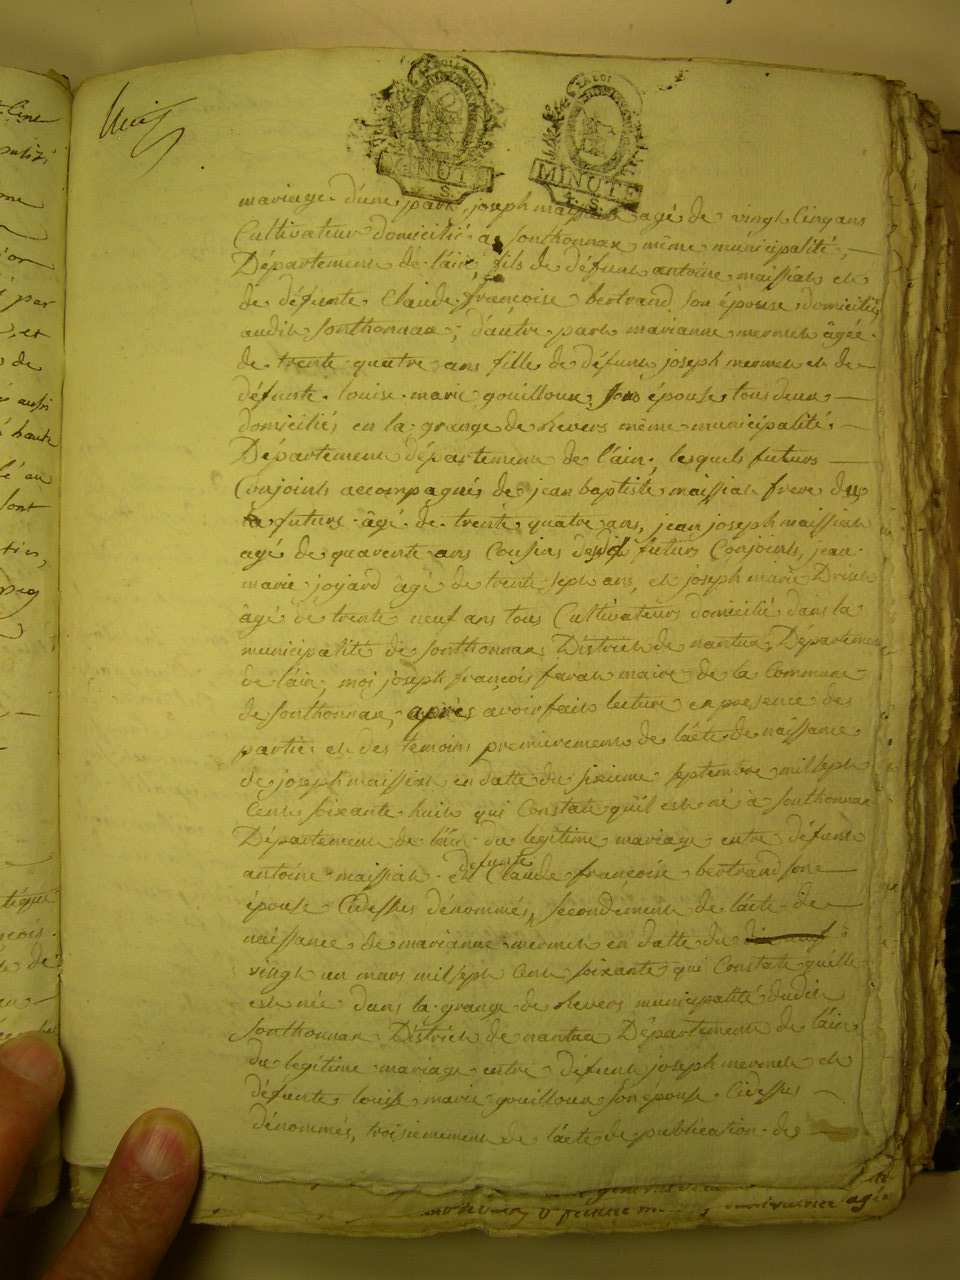 MINUTE
MINUTE
LA LOI
mariage. d'une part, joseph maissiat agé de vingt Cinq ans
Cultivateur domicilié à Sonthonnax même municipalité,
Département de l'ain, fils de défunt antoine maissiat et
de défunte Claude françoise bertrand son épouse domiciliés
audit Sonthonnax; d'autre part marianne mermet âgée
de trente quatre ans fille de défunt joseph mermet et de
défunte louise marie gouilloux son épouse, tous deux
domiciliés en la grange de hevers même municipalité
Département département de l'ain, lesquels futurs
Conjoints accompagnés de jean baptiste maissiat frere du
futur âgé de trente quatre ans, jean joseph maissiat
agé de quarente ans Cousins desd futurs Conjoints, jean
marie joyard âgé de trente sept ans, et joseph marie
âgé de trente neuf ans tous Cultivateurs domicilié dans la
municipalité de Sonthonnax District de nantua Département
de l'ain, moi joseph françois maire de la Commune
de Sonthonnax, après avoir fait lecture en presence des
parties et des temoins premierement de l'acte de naissance
de joseph maissiat en datte du sixieme septembre mil sept
Cent soixante huit qui Constate qu'il est né à Sonthonnax
Département de l'ain du legitime mariage entre défunt
antoine maissiat et defunte Claude françoise bertrand son
épouse Cidessus dénommés, secondement de l'acte de
naissance de marianne mermet en datte du
vingt un mars mil sept Cent soixante qui Constate quelle
est née dans la grange de hevers municipalité dudit
Sonthonnax District de nantua Département de l'ain
du legitime mariage entre défunt joseph mermet et
défunte louise marie gouilloux son épouse Cidessus
dénommés, troisiemement de l'acte de publication de